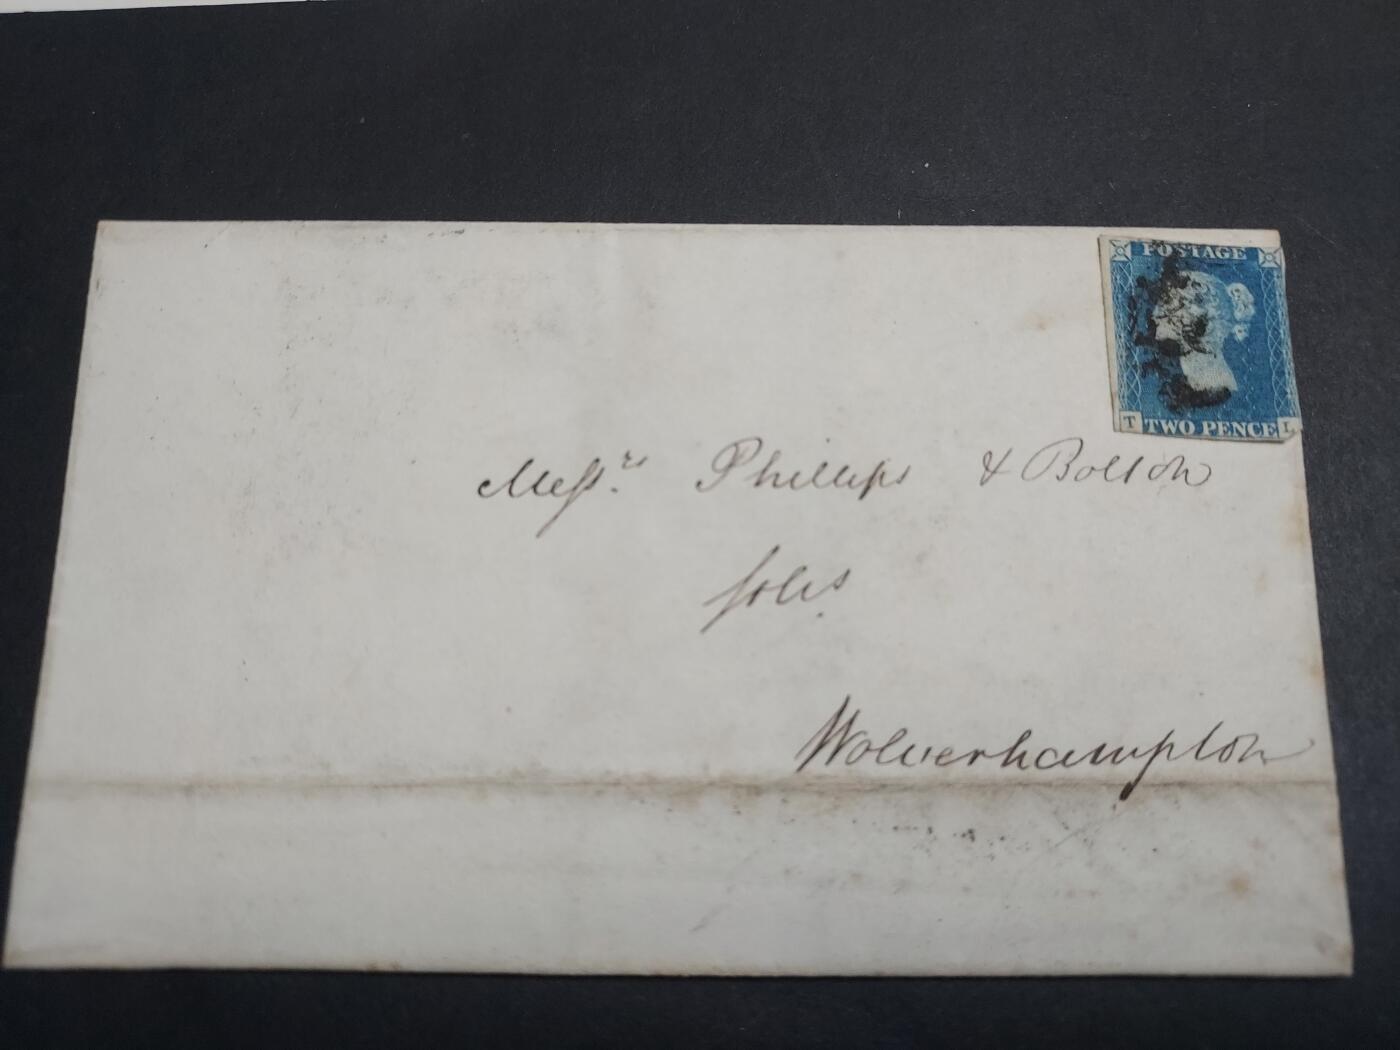 POSTAGE
T TWO PENCE L
Messrs. Phillips & Bolton
Solrs
Wolverhampton